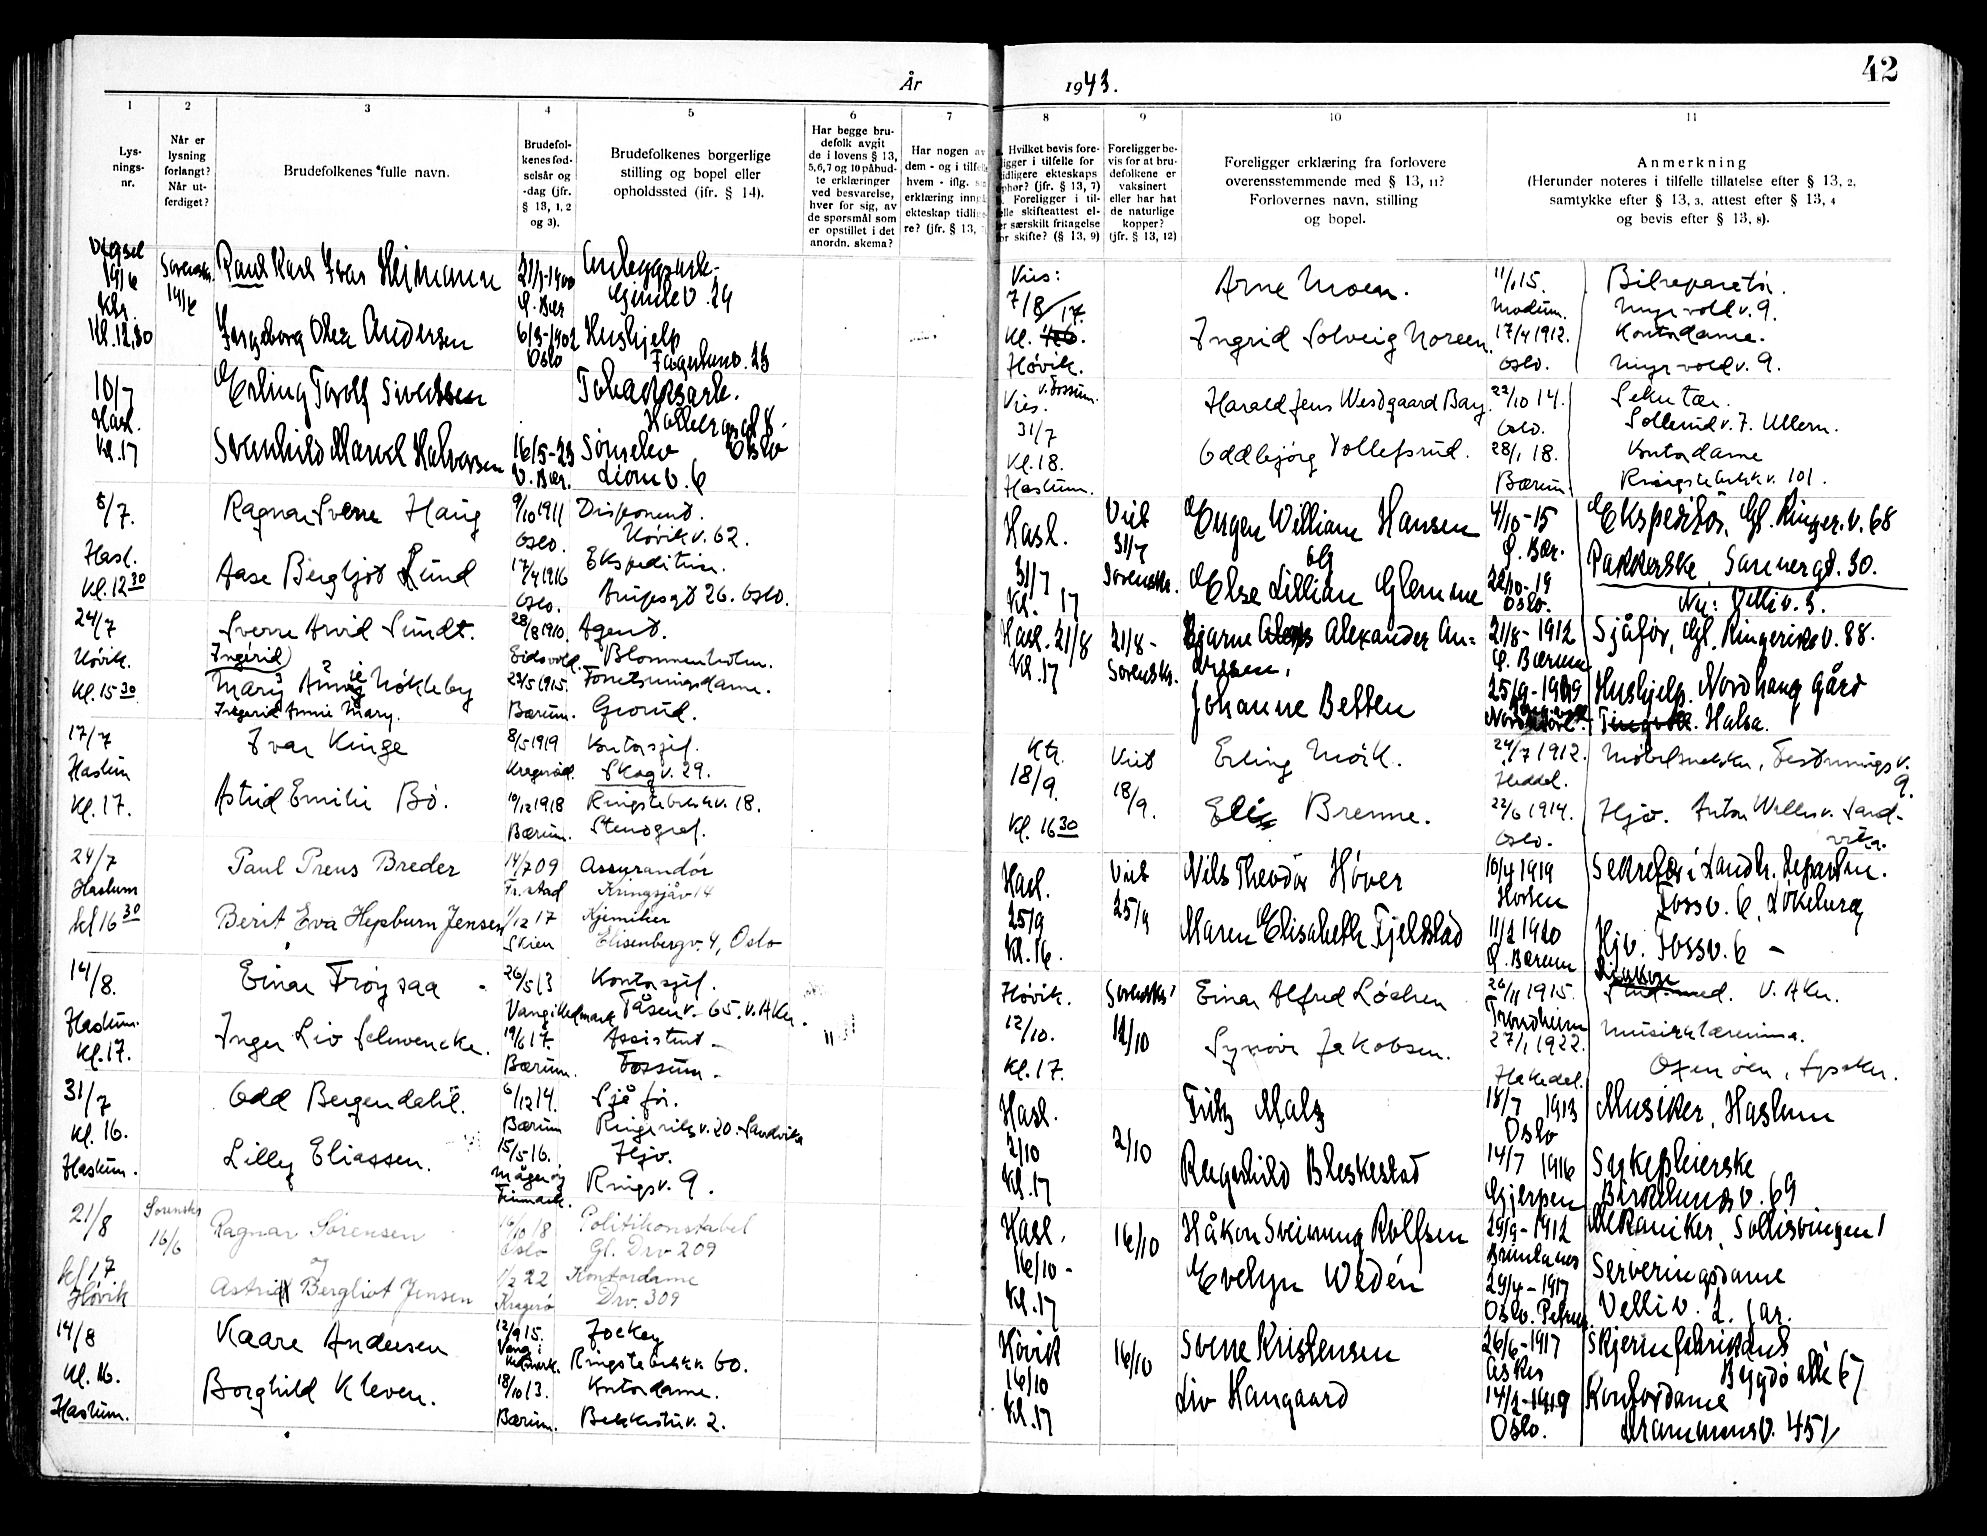 42
År 1943.
1 2 3 4 5 6 7 8 9 10 11
Lys-
nings-
nr.
Når er
lysning
forlangt?
Når ut-
ferdiget?
Brudefolkenes fulle navn.
Brudefol-
kenes fød-
selsår og
-dag (jfr.
§ 13, 1, 2
og 3).
Brudefolkenes borgerlige
stilling og bopel eller
opholdssted (jfr. § 14).
Har begge bru-
defolk avgit
de i lovens § 13,
5,6,7 og 10 påbud-
te erklæringer
ved besvarelse,
hver for sig, av
de spørsmål som
er opstillet i det
anordn. skema?
Har nogen av
dem - og i tilfelle
hvem - iflg.
erklæring inng
ekteskap tidlige-
re? (jfr. § 13,
Hvilket bevis fore-
ligger i tilfelle for
tidligere ekteskaps
ophør? (jfr. § 13, 7)
Foreligger i til-
felle skifteattest el-
er særskilt fritagelse
for skifte? (§ 13, 9)
Foreligger be-
vis for at bru-
defolkene er
vaksinert
eller har hat
de naturlige
kopper?
(jfr. § 13, 12)
Foreligger erklæring fra forlovere
overensstemmende med § 13, 11?
Forlovernes navn, stilling
og bopel.
Anmerkning
(Herunder noteres i tilfelle tillatelse efter § 13, 2,
samtykke efter § 13, 3, attest efter § 13, 4
og bevis efter § 13, 8).
Kl. 12,30
Karl Ivar
21/1-1900
Ø. Bær
Ingeborg Olea Andersen
6/3-1902
Oslo
Hushjelp
10/7
Hasl.
Kl. 17
Erling Torolf Sivertsen
Svanhild Marvel Halvorsen
16/5-23
V. Bær.
Oslo
Liom v. 6
8/7.
Hasl.
Kl. 12 30
Ragnar Sverre Haug
9/10 1911
Oslo.
Disponent.
Høvik v. 62.
Aase Bergljot Lund
17/4 1916
Oslo.
26. Oslo.
24/7
Høvik.
Kl. 15 30
Sverre Arvid Sundt.
28/8 1910.
Eidsvold.
Agent.
Blommenholm.
Ingerid
Mary Annie Nøkleby
Ingerid Annie Mary.
23/5 1915.
Bærum.
Forretningsdame.
Grorud.
17/7
Haslum
Kl. 17.
Ivar Kinge
8/5 1919
Kontorsjef.
Skog v. 29.
Astrid Emilie Bö.
10/12 1918
Bærum.
Ringstabekkv. 18.
Stenograf.
24/7
Haslum
kl 16 30
Paul Preus Breder
14/7 09
Fr.stad
Assurandør
Kringsjåv 14
Berit Eva Hepburn Jensen
1/12 17
Skien
Kjemiker
Elisenbergv. 4, Oslo
14/8.
Haslum.
Kl. 17.
Einar Frøysaa
26/5 13
Vang i Hedmark
Kontorsjef.
Tåsen v. 65. V. Aker.
Inger Liv Schwencke.
19/6 17.
Bærum.
Assistent
Fossum
31/7
Kl. 16.
Haslum.
Odd Bergendahl.
6/12 14.
Bærum
Sjåfør.
Ringeriks v. 20. Sandvika
Lilly Eliassen.
15/5-16.
Magerøy
Finnmark.
Hjv.
Rings v. 9.
21/8
kl 17
Høvik
Sorenskr
16/6
Ragnar Sørensen
og
16/10 18
Oslo
Politikonstabel
Gl. Drv 209
Astrid Bergliot Jensen
1/2 22
Kragerø
Kontordame
Drv. 309
14/8
Kl. 16.
Haslum.
Kaare Andersen
12/9 15.
Vang i
Hedmark.
Jockey
Ringstabekk v. 60.
Borghild Kleven.
18/10 13.
Bærum.
Kontordame.
Bekkestu v. 2.
Vies:
7/8
Kl. 17.
Høvik.
Arne Moen.
11/1 15.
Modum.
Bilreparatør.
Myrvold v. 9.
Ingrid Solveig Noreen.
17/4 1912.
Oslo.
Kontordame.
Myrvold v. 9.
v. Fossum.
Vies.
31/7
Kl. 18.
Haslum.
Harald Jens Westgaard Bay
22/10 14.
Oslo.
Sekretær.
Sollerud v. 7. Ullern.
Oddbjørg Tollefsrud.
28/1 18.
Bærum.
Kontordame
Ringstabekk v. 101.
Hasl.
31/7
Kl. 17
Viet
31/7
Sorenskr.
Eugen William Hansen
og
4/10-15
Ø. Bær.
Ekspeditør, Gl. Ringer. v. 68
Else Lillian Glemme
22/10-19
Oslo.
Pakkerske Sannergt. 30.
Nu: Velliv. 3.
Hasl. 21/8
Kl. 17
21/8 -
Sorenskr.
Bjarne Alexander An-
dersen.
21/8-1912
Ø. Bærum
Sjåfør, Gl. Ringeriks v. 88.
Johanne Betten
25/9-1919
Hushjelp. Nordhaug gård
Halsa.
Kl.
18/9.
Kl. 16 30
Viet
18/9.
Erling Moik.
24/7 1912.
Heddal.
Møbelsnekker, Festnings v.
9.
Elis Brenne.
22/6 1914.
Oslo.
Hjv. Anton Wallesv. Sand-
vika.
Hasl.
25/9
Kl. 16.
Viet
25/9
Nils Theodor Höver
10/4 1919
Horten
Sekretær i Landbr. departem.
Fossv. 6, Løkeberg
Maren Elisabeth Fjeldstad
11/2 1920
Ø. Bærum
Hjv. Fossv. 6 -
Høvik.
12/10.
Kl. 17.
Sorenskr'
12/10
Einar Alfred Løchen
26/11 1915.
Trondheim
Stud. med. V. Aker.
Synøve Jakobsen.
27/1 1922.
Hakadal.
Musikklærerinne.
Oxenøen, Lysaker.
Hasl.
2/10
Kl. 17
2/10
Fritz Malz
18/7 1913
Oslo
Musiker, Haslum
Ragnhild Bleskestad
14/7 1916
Gjerpen
Sykepleierske
Birkelunds v. 69
Hasl.
16/10 -
Kl. 17
16/10
Håkon Sveinung Rolfsen
29/9-1912
Brunlanes
Mekaniker, Sollisvingen 1
Evelyn Wedén
29/4-1917
Oslo. Petrus.
Serveringsdame
Velliv. 2. Jar.
Høvik
16/10
Kl. 17
16/10
Sverre Kristensen
26/6-1917
Asker
Skjermfabrikant
Bygdø allé 67
Liv Haugaard
14/2-1919
Oslo.
Kontordame
Drammensv. 451